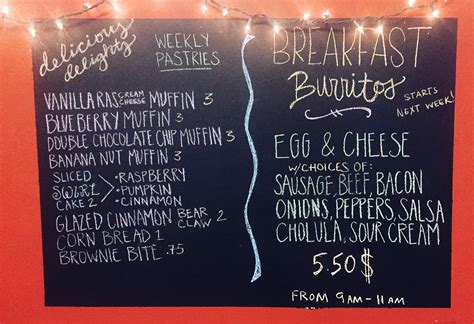 delicious
delights
WEEKLY
PASTRIES
VANILLA RAS CREAM CHEESE MUFFIN 3
BLUEBERRY MUFFIN 3
DOUBLE CHOCOLATE CHIP MUFFIN 3
BANANA NUT MUFFIN 3
SLICED • RASPBERRY
SWIRL • PUMPKIN
CAKE 2 • CINNAMON
GLAZED CINNAMON BEAR CLAW 2
CORN BREAD 1
BROWNIE BITE .75
BREAKFAST
Burritos
STARTS
NEXT WEEK!
EGG & CHEESE
W/CHOICES OF:
SAUSAGE, BEEF, BACON
ONIONS, PEPPERS, SALSA
CHOLULA, SOUR CREAM
5.50$
FROM 9AM-11AM